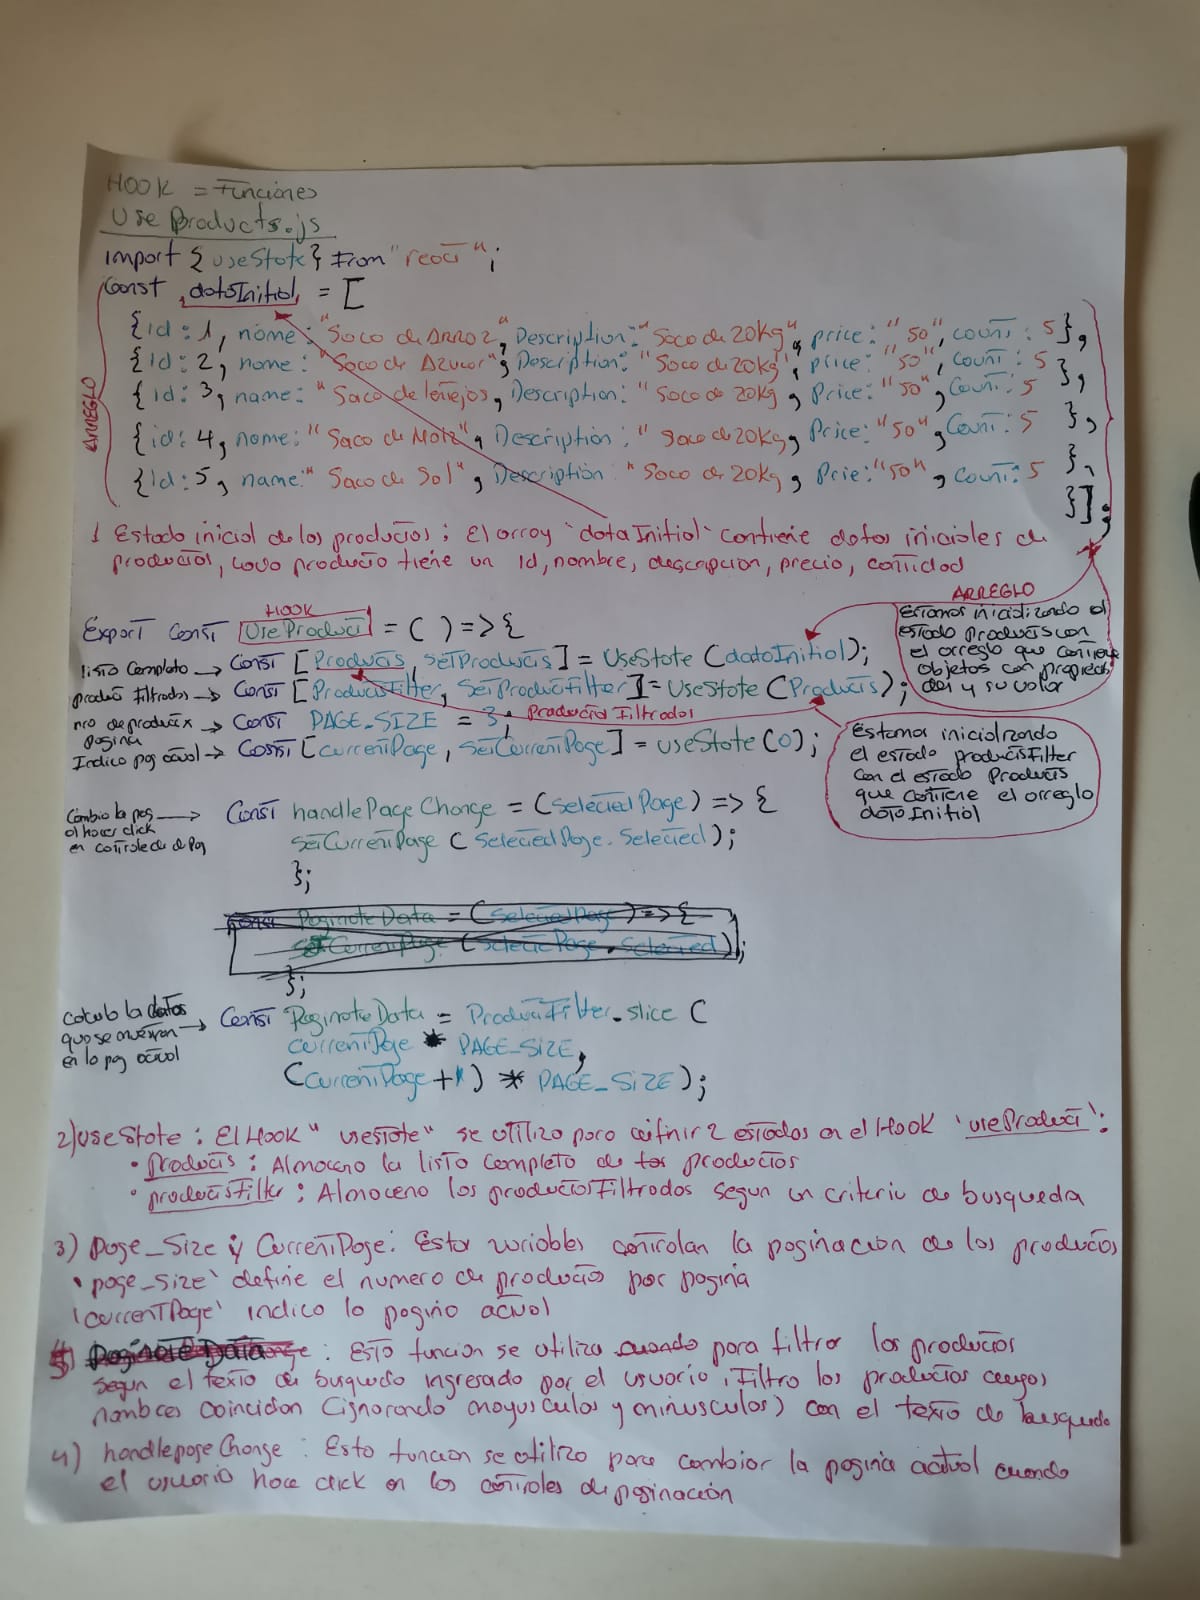 HOOK = Funciones
Use Products.js
import { useState } From "react";
Const dataInitial = [
{id: 1, name: "Saco de Arroz", Description: "Saco de 20Kg", price: "50", count: 5},
{id: 2, name: "Saco de Azucar", Description: "Saco de 20kg", price: "50", Count: 5
},
{id: 3, name: "Saco de lentejas, Description: "Saco de 20kg, Price: "50", Count: 5
{id: 4, name: "Saco de Maiz", Description: "Saco de 20kg, Price: "50", Count: 5
},
{id: 5, name: "Saco de Sal", Description "Saco de 20kg, Prie: "50", Count: 5
},
}];
ARREGLO
1 Estado inicial de los productos: El array `dataInitial` contiene datos iniciales de
productos, cada producto tiene un Id, nombre, descripcion, precio, cantidad
HOOK
Export Const UseProduct = ( ) => {
lista Completa → Const [Products, setProducts] = UseState (dataInitial);
produc filtrados → Const [ProductsFilter, SetProductFilter] = UseState (Products);
nro de product x pagina → Const PAGE_SIZE = 3;
Productos Filtrados
Indica pag actual → Const [currentPage, setCurrentPage] = useState(0);
ARREGLO
Estamos inicializando el
estado products con
el arreglo que contiene
Objetos con propieda
des y su valor
Estamos inicializando
el estado productsFilter
Con el estado Products
que contiene el arreglo
dataInitial
Cambia la pag
al hacer click
en controle de Pag
Const handlePageChange = (SelectedPage) => {
SetCurrentPage (SelectedPage.Selected);
};
Const PaginateData = (SelectedPage) => {
SetCurrentPage (SelectePage.Selected);
};
que se muestran
en la pag actual
Const PaginateData = ProductFilter.slice (
CurrentPage * PAGE_SIZE,
(CurrentPage + 1) * PAGE_SIZE);
2) UseState: El Hook "useState" se utiliza para definir 2 estados en el Hook 'useProduct':
• products: Almacena la lista completa de los productos
• productsFilter: Almacena los productos Filtrados segun un criterio de busqueda
3) Page_Size y CurrentPage: Estas variables controlan la paginacion de los productos
• page_size` define el numero de producto por pagina
'currentPage' indica la pagina actual
5) PaginateData: Esta funcion se utiliza cuando para filtrar los productos
segun el texto de busqueda ingresado por el usuario, Filtra los productos cuyos
nombres coincidan (ignorando mayusculas y minusculas) con el texto de busqueda
4) handlepageChange: Esta funcion se utiliza para cambiar la pagina actual cuando
el usuario hace click en los controles de paginación